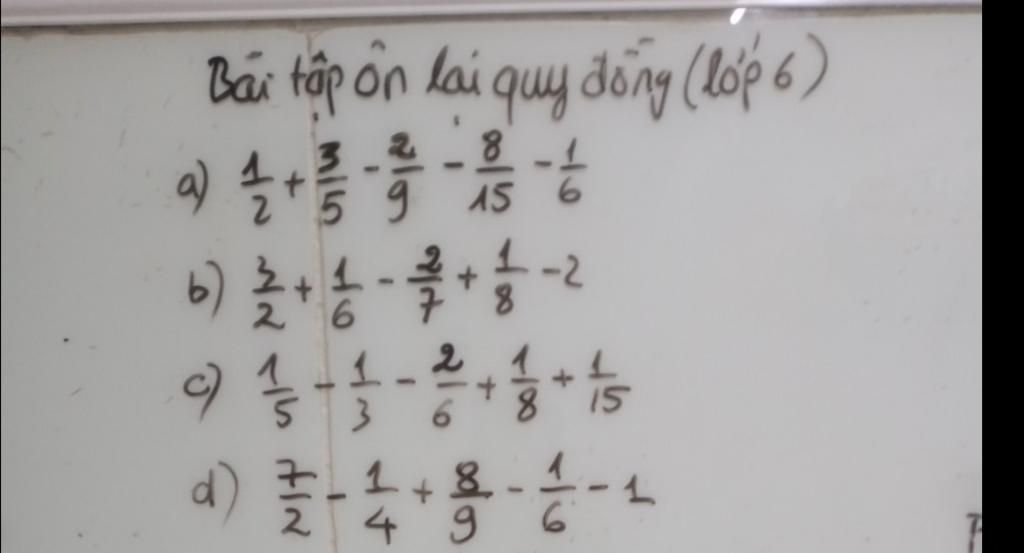 Bài tập ôn lại quy đồng (lớp 6)
a) 1/2 + 3/5 - 2/9 - 8/15 - 1/6
b) 3/2 + 1/6 - 2/7 + 1/8 - 2
c) 1/5 - 1/3 - 2/6 + 1/8 + 1/15
d) 7/2 - 1/4 + 8/9 - 1/6 - 1